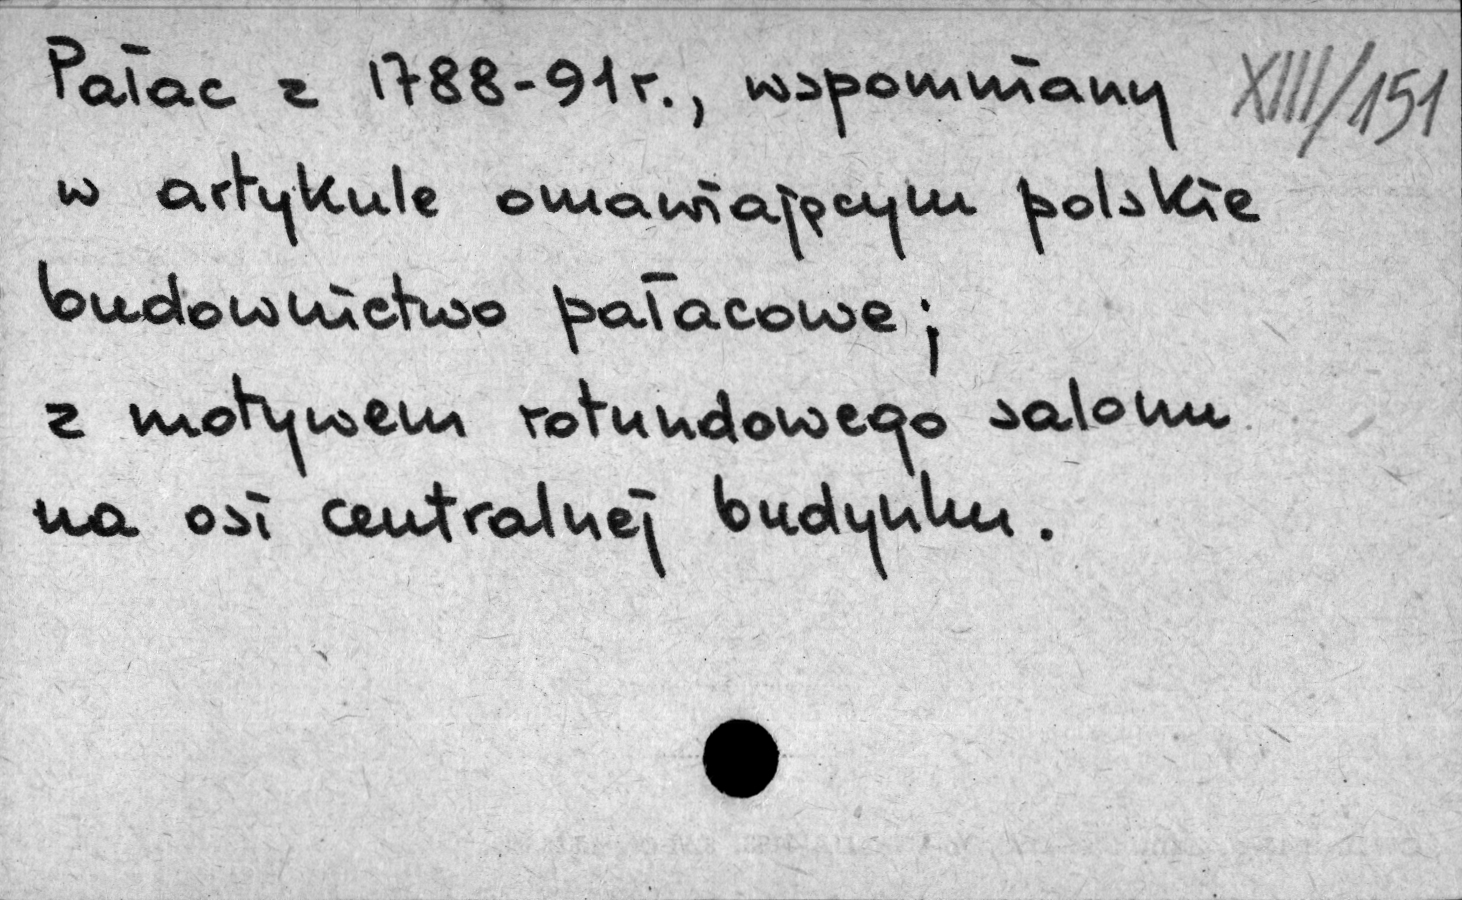 Pałac z 1788-91r., wspomniany XIII/151
w artykule omawiającym polskie
budownictwo pałacowe;
z motywem rotundowego salonu
na osi centralnej budynku.